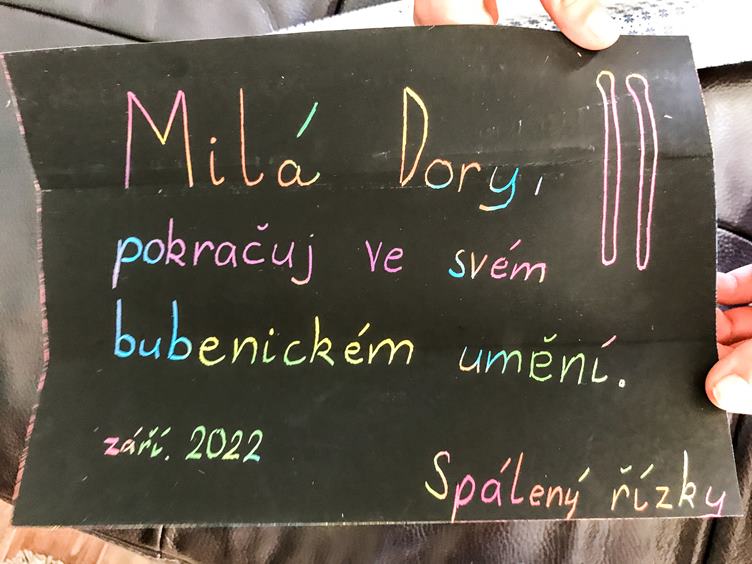 Milá Dory,
pokračuj ve svém
bubenickém umění.
září. 2022
Spálený řízky